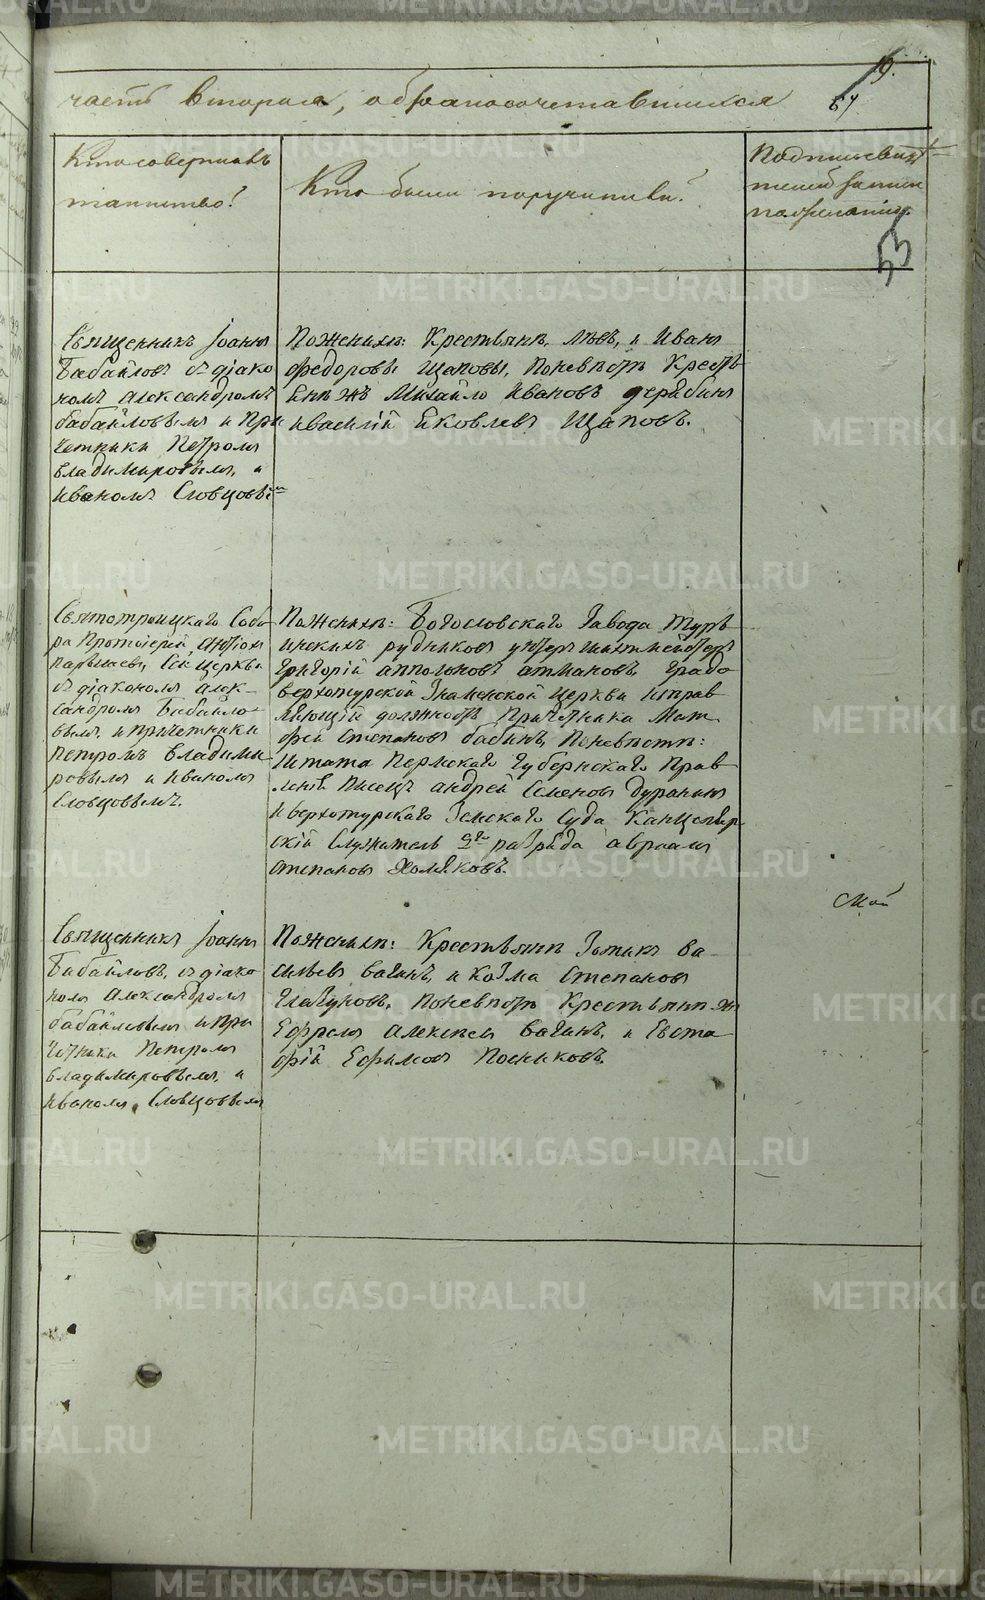 19.
67
часть вторая, о бракосочетавшихся
Кто совершалъ
таинство?
Кто были поручители?
Подпись
записи
по желанію.
53
Священникъ Іоаннъ
Бабайловъ съ діако
номъ Александромъ
Бабайловымъ и При
четники Петромъ
Владимировымъ, и
Иваномъ Словцовы
По женихѣ: Крестьяне, Левъ, и Иванъ
Федоровы Щаповы, По невѣстѣ Кресть
яне жъ Михайло Ивановъ Дерябинъ
и Василій Яковлевъ Щаповъ.
Святотроицкаго Собо
ра Протоіерей
сей церкви
съ діакономъ Алек
сандромъ Бабайло
вымъ, и причетники
Петромъ Владими
ровымъ и Иваномъ
Словцовымъ.
По женихѣ: Богословскаго Завода Турь
инскихъ рудниковъ унтеръ шихтмейстеръ
Григорій Аполлоновъ Атмановъ, Градо
верхотурской Знаменской церкви исправ
ляющій должность Причетника Мат
фей Степановъ Бабинъ, По невѣстѣ:
штата Пермскаго Губернскаго Прав
ленія Писецъ Андрей Семеновъ Дуранинъ
и Верхотурскаго Земскаго Суда Канцеляр
скій Служитель 2го разряда Авраамъ
Степановъ Хомяковъ.
Май
Священникъ Іоаннъ
Бабайловъ, съ діако
номъ Александромъ
Бабайловымъ и при
четники Петромъ
Владимировымъ, и
Иваномъ Словцовымъ
По женихѣ: Крестьяне Зотикъ Ва
сильевъ Вагинъ, и Козма Степановъ
Глазуновъ, По невѣстѣ Крестьяне жъ
Ефремъ Алексѣевъ Вагинъ, и Евста
фій Ефимовъ Посниковъ.
METRIKI.GASO-URAL.RU